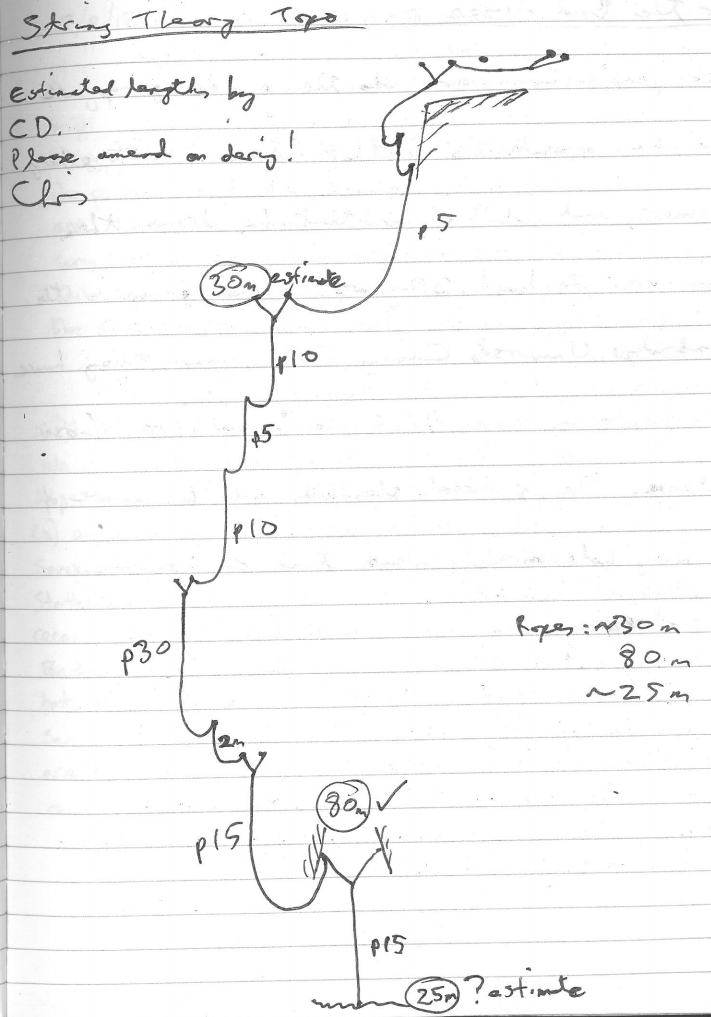 String Theory Topo
Estimated lengths by
CD.
Please amend on derig!
Chris
p5
30m estimate
p10
p5
p10
p30
Ropes: ~30m
80m
~25m
2m
80m ✓
p15
p15
25m ? estimate